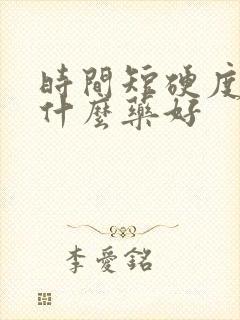 時間短硬度
什麼藥好
李愛銘